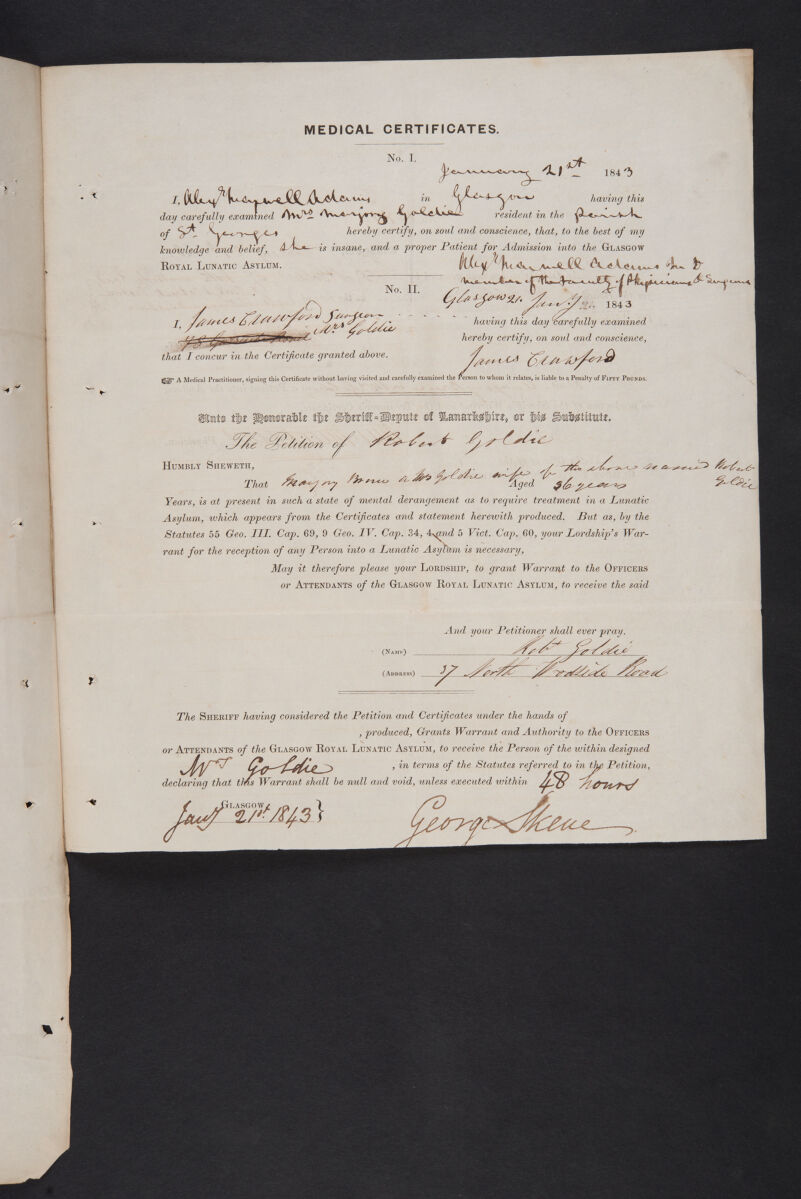 MEDICAL CERTIFICATES.
No. I.
January 21st 1843
I, Alexr Maxwell Adams in Glasgow having this
day carefully examined Mrs Marjory Goldie resident in the parish
of St. Georges hereby certify, on soul and conscience, that, to the best of my
knowledge and belief, she is insane, and a proper Patient for Admission into the GLASGOW
ROYAL LUNATIC ASYLUM.
Alexr Maxwell Adams M D
member of the Faculty of Physicians & Surgeons
No. II.
Glasgow 21. Jany 1843
I, James Crawford Surgeon having this day carefully examined
Mrs Goldie hereby certify, on soul and conscience,
that I concur in the Certificate granted above.
James Crawford
☞ A Medical Practitioner, signing this Certificate without having visited and carefully examined the Person to whom it relates, is liable to a Penalty of FIFTY POUNDS.
Unto the Honorable the Sheriff-Depute of Lanarkshire, or his Substitute.
The Petition of Robert Goldie
HUMBLY SHEWETH,
That Marjory or Mrs Goldie wife of the above named Robert Goldie
Aged 36 years
Years, is at present in such a state of mental derangement as to require treatment in a Lunatic
Asylum, which appears from the Certificates and statement herewith produced. But as, by the
Statutes 55 Geo. III. Cap. 69, 9 Geo. IV. Cap. 34, 4 and 5 Vict. Cap. 60, your Lordship's War-
rant for the reception of any Person into a Lunatic Asylum is necessary,
May it therefore please your LORDSHIP, to grant Warrant to the OFFICERS
or ATTENDANTS of the GLASGOW ROYAL LUNATIC ASYLUM, to receive the said
And your Petitioner shall ever pray.
(NAME) Robt Goldie
(ADDRESS) 37 North Woodside Road
The SHERIFF having considered the Petition and Certificates under the hands of
, produced, Grants Warrant and Authority to the OFFICERS
or ATTENDANTS of the GLASGOW ROYAL LUNATIC ASYLUM, to receive the Person of the within designed
Mrs Goldie , in terms of the Statutes referred to in the Petition,
declaring that this Warrant shall be null and void, unless executed within 48 hours
GLASGOW
Jany 21st 1843 }
George Skene